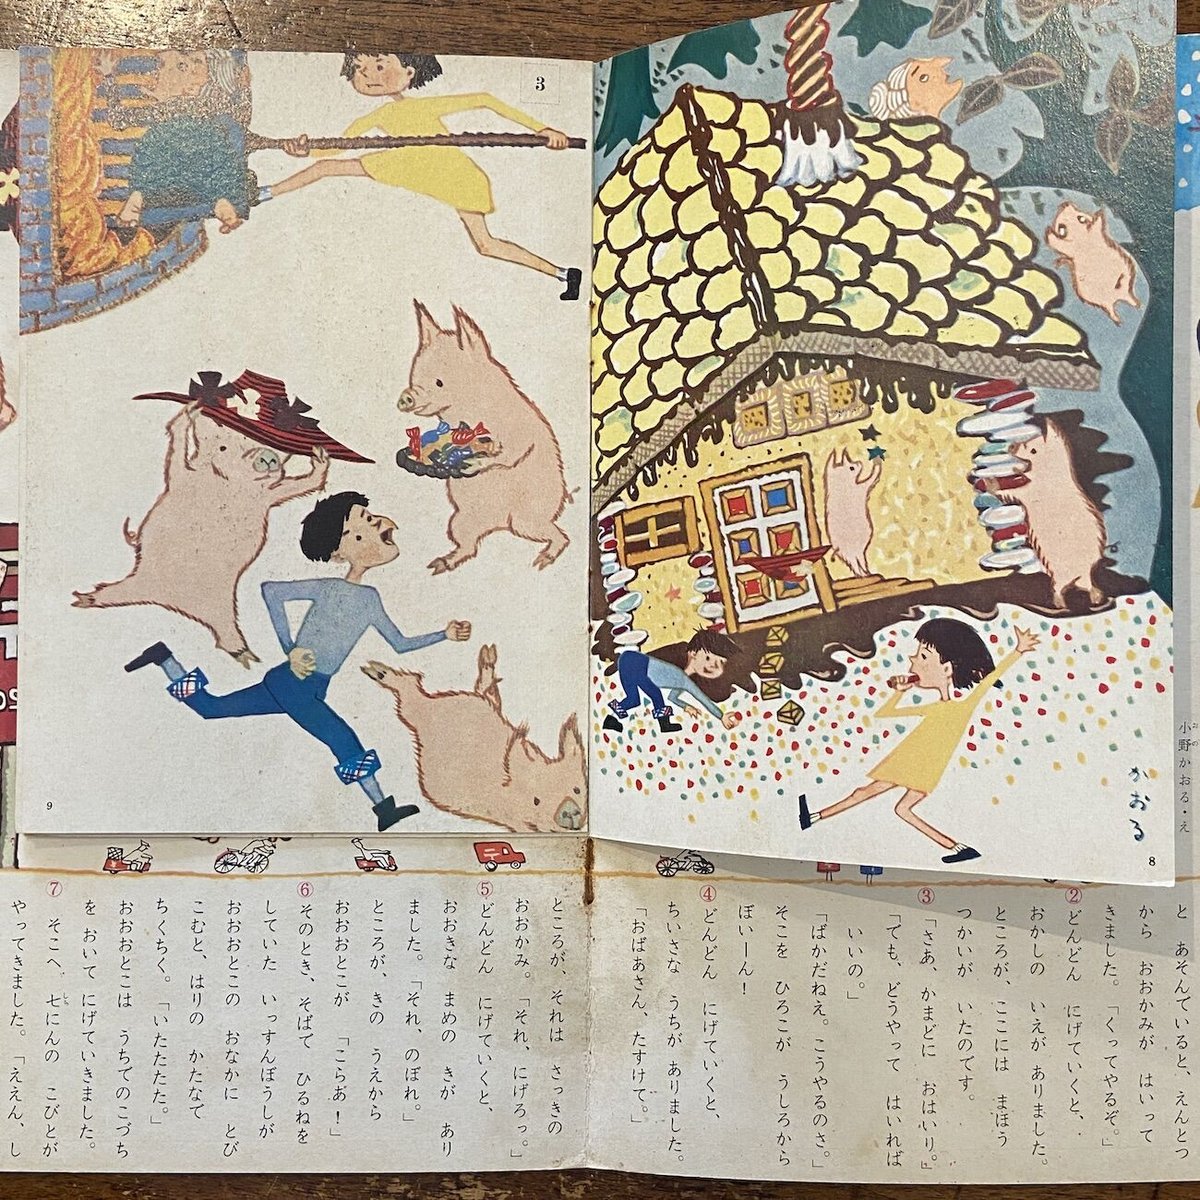 3
かおる
8
9
小野かおる・え
おの
と あそんでいると、えんとつ
から おおかみが はいって
きました。「くってやるぞ。」
② どんどん にげていくと、
おかしの いえが ありました。
ところが、ここには まほう
つかいが いたのです。
③ 「さあ、かまどに おはいり。」
「でも、どうやって はいれば
いいの。」
「ばかだねえ。こうやるのさ。」
そこを ひろこが うしろから
ぼいーん!
④ どんどん にげていくと、
ちいさな うちが ありました。
「おばあさん、たすけて。」
ところが、それは さっきの
おおかみ。「それ、にげろっ。」
⑤ どんどん にげていくと、
おおきな まめの きが あり
ました。「それ、のぼれ。」
ところが、きの うえから
おおおとこが 「こらあ!」
⑥ そのとき、そばで ひるねを
していた いっすんぼうしが
おおおとこの おなかに とび
こむと、はりの かたなで
ちくちく。「いたたたた。」
おおおとこは うちでのこづち
を おいて にげていきました。
⑦ そこへ 七にんの こびとが
しち
やってきました。「ええん、し